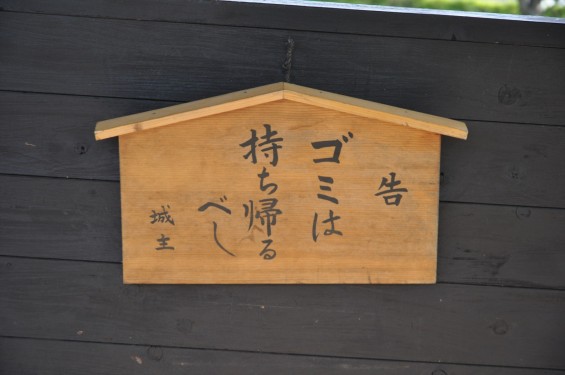 告
ゴミは
持ち帰る
べし
城主